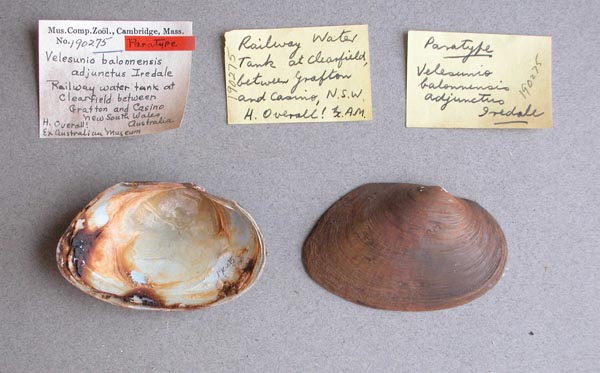 Mus.Comp.Zoöl., Cambridge, Mass.
No. 190275 Paratype
Velesunio balonnensis
adjunctus Iredale
Railway water tank at
Clearfield between
Grafton and Casino
New South Wales,
H. Overall! Australia
Ex Australian Museum
190275
Railway Water
Tank at Clearfield,
between Grafton
and Casino, N.S.W
H. Overall!
Paratype
Velesunio
balonnensis
adjunctus
Iredale
190275